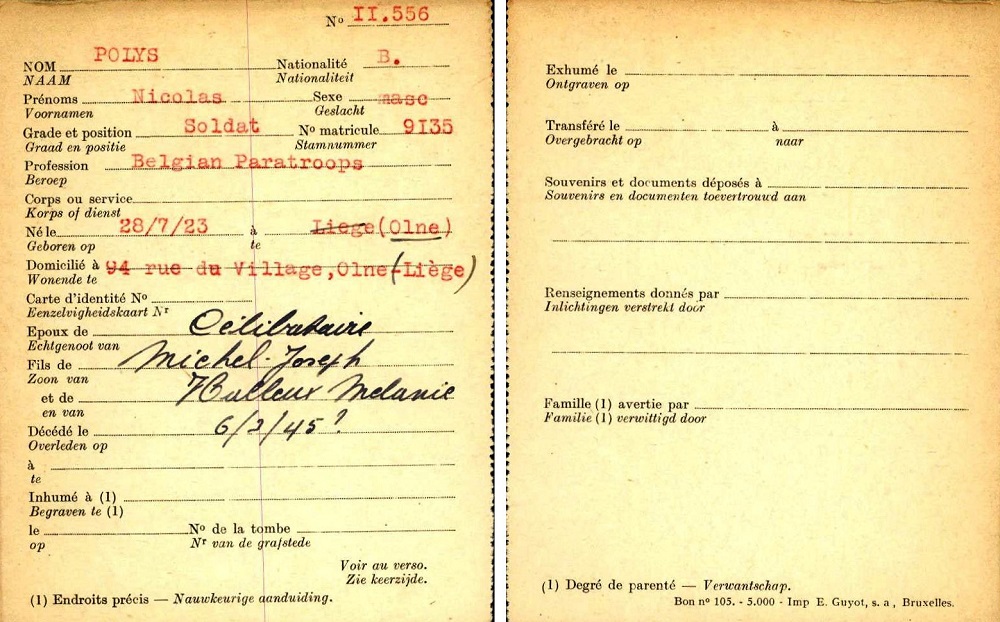 Nº II.556
NOM POLYS Nationalité B.
NAAM Nationaliteit
Prénoms Nicolas Sexe masc
Voornamen Geslacht
Grade et position Soldat Nº matricule 9I35
Graad en positie Stamnummer
Profession Belgian Paratroops
Beroep
Corps ou service
Korps of dienst
Né le 28/7/23 à Liege(Olne)
Geboren op te
Domicilié à 94 rue du Village,Olne(-Liège)
Wonende te
Carte d'identité Nº
Eenzelvigheidskaart Nr
Epoux de Célibataire
Echtgenoot van
Fils de Michel-Joseph
Zoon van
et de Halleux Melanie
en van
Décédé le 6/2/45 ?
Overleden op
à
te
Inhumé à (1)
Begraven te (1)
le Nº de la tombe
op Nr van de grafstede
Voir au verso.
Zie keerzijde.
(1) Endroits précis — Nauwkeurige aanduiding.
Exhumé le
Ontgraven op
Transféré le à
Overgebracht op naar
Souvenirs et documents déposés à
Souvenirs en documenten toevertrouwd aan
Renseignements donnés par
Inlichtingen verstrekt door
Famille (1) avertie par
Familie (1) verwittigd door
(1) Degré de parenté — Verwantschap.
Bon nº 105. - 5.000 - Imp E. Guyot, s. a, Bruxelles.